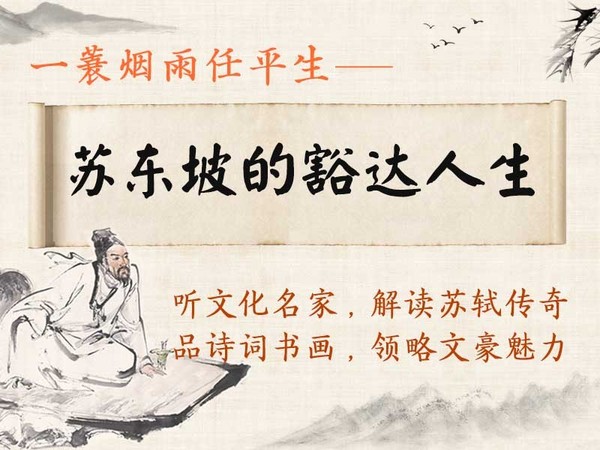 一蓑烟雨任平生——
苏东坡的豁达人生
听文化名家，解读苏轼传奇
品诗词书画，领略文豪魅力